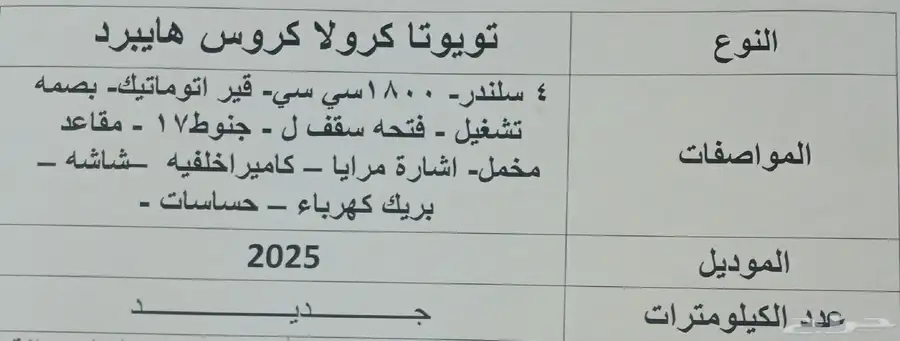 النوع
تويوتا كرولا كروس هايبرد
المواصفات
٤ سلندر- ١٨٠٠سي سي- قير اتوماتيك- بصمه
تشغيل - فتحه سقف ل - جنوط١٧ - مقاعد
مخمل- اشارة مرايا – كاميراخلفيه –شاشه –
بريك كهرباء – حساسات -
الموديل
2025
عدد الكيلومترات
جـــــديـــــــــد